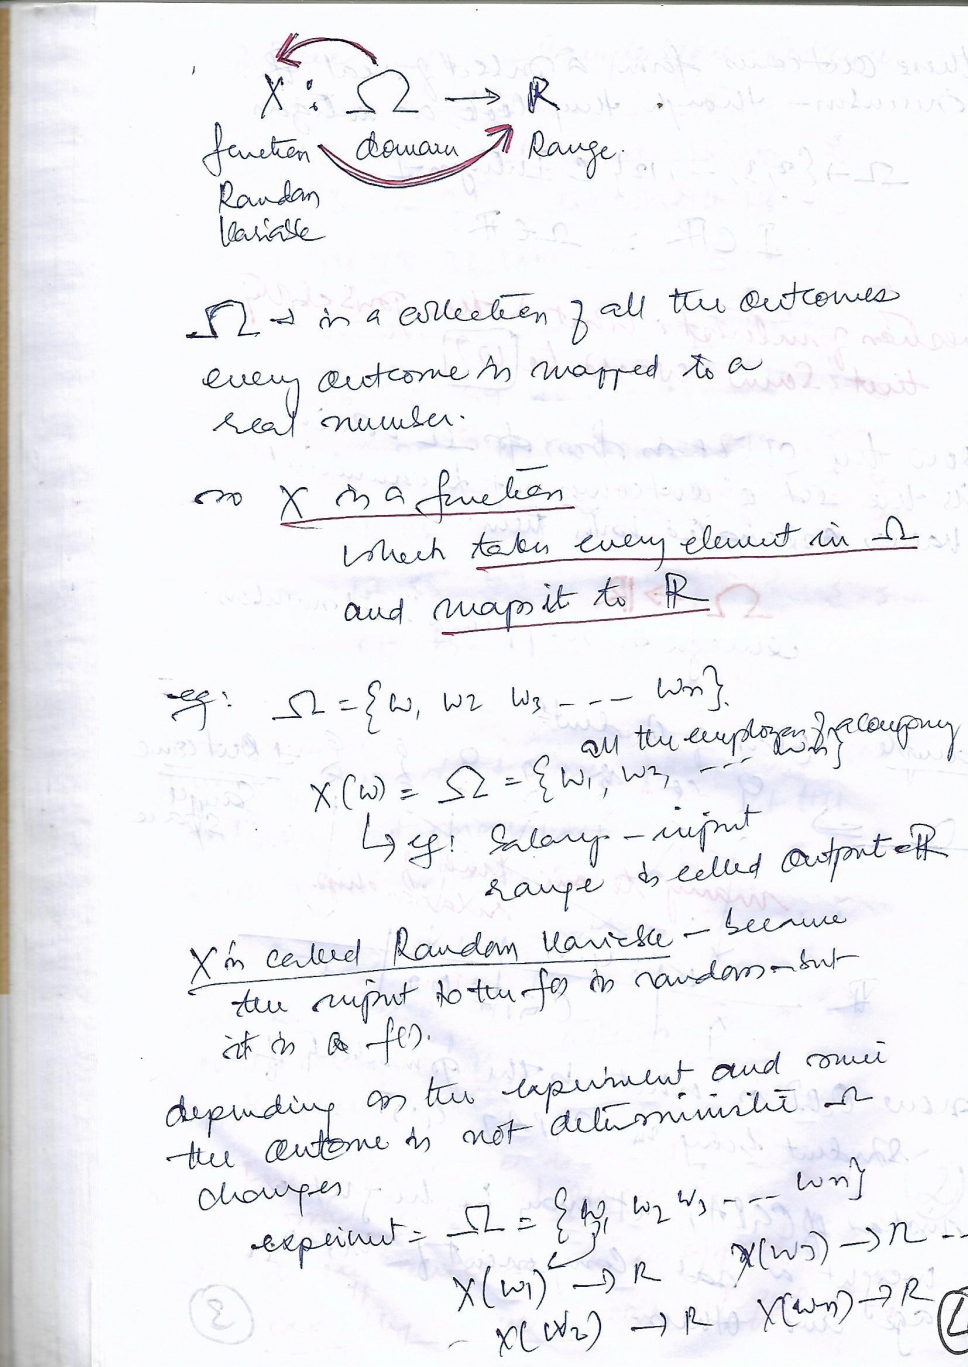 X : Ω → ℝ
function domain Range.
Random
Variable
Ω → is a collection of all the outcomes
every outcome is mapped to a
real number.
so X is a function
which takes every element in Ω
and maps it to ℝ
eg: Ω = {w1 w2 w3 --- wn}.
all the employees of a company
X(w) = Ω = {w1, w2, --- wn}
↳ eg: Salary - input
range is called output = ℝ
X is called Random Variable - because
the input to the fn is random - but
it is a f().
depending on the experiment and since
the outome is not deterministic Ω
changes
experiment = Ω = {w1 w2 w3 --- wn}
X(w1) → R X(w3) → R --
X(w2) → R X(wn) → R